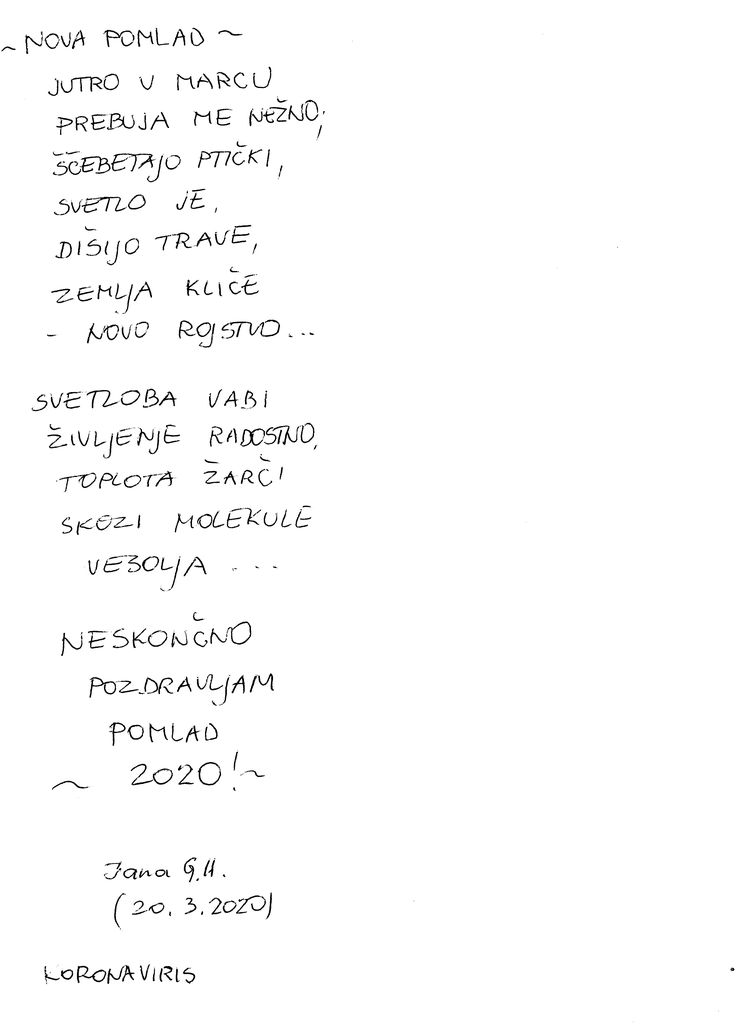 ~ NOVA POMLAD ~
JUTRO V MARCU
PREBUJA ME NEŽNO;
ŠČEBETAJO PTIČKI,
SVETLO JE,
DIŠIJO TRAVE,
ZEMLJA KLIČE
- NOVO ROJSTVO...
SVETLOBA VABI
ŽIVLJENJE RADOSTNO,
TOPLOTA ŽARČI
SKOZI MOLEKULE
VESOLJA ...
NESKONČNO
POZDRAVLJAM
POMLAD
~ 2020! ~
Jana G.H.
(20.3.2020)
KORONAVIRIS